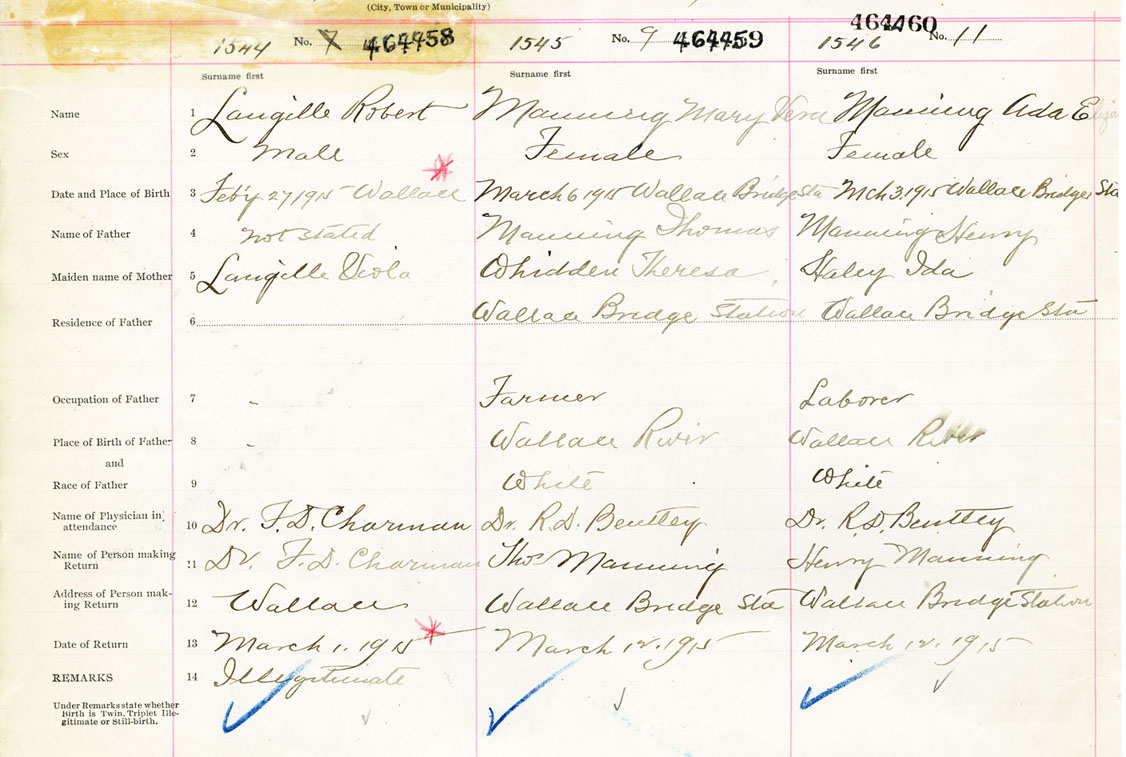 (City, Town or Municipality)
1544 No. 7 464458 1545 No. 9 464459 1546 464460 No. 11
Surname first Surname first Surname first
Name 1 Langille Robert Manning Mary Vera Manning Ada
Sex 2 Male Female Female
Date and Place of Birth 3 Feb'y 27 1915 Wallace March 6 1915 Wallace Bridge Sta Mch 3. 1915 Wallace Bridge Sta
Name of Father 4 Not stated Manning Thomas Manning Henry
Maiden name of Mother 5 Langille Viola Whidden Theresa Haley Ida
Residence of Father 6 Wallace Bridge Station Wallace Bridge Sta
Occupation of Father 7 - Farmer Laborer
Place of Birth of Father 8 - Wallace River Wallace River
and
Race of Father 9 White White
Name of Physician in attendance 10 Dr. F. D. Charman Dr. R. D. Bentley Dr. R. D. Bentley
Name of Person making Return 11 Dr. F. D. Charman Thos Manning Henry Manning
Address of Person making Return 12 Wallace Wallace Bridge Sta Wallace Bridge Station
Date of Return 13 March 1. 1915 March 12. 1915 March 12. 1915
REMARKS 14 Illegitimate
Under Remarks state whether
Birth is Twin, Triplet Ille-
gitimate or Still-birth.